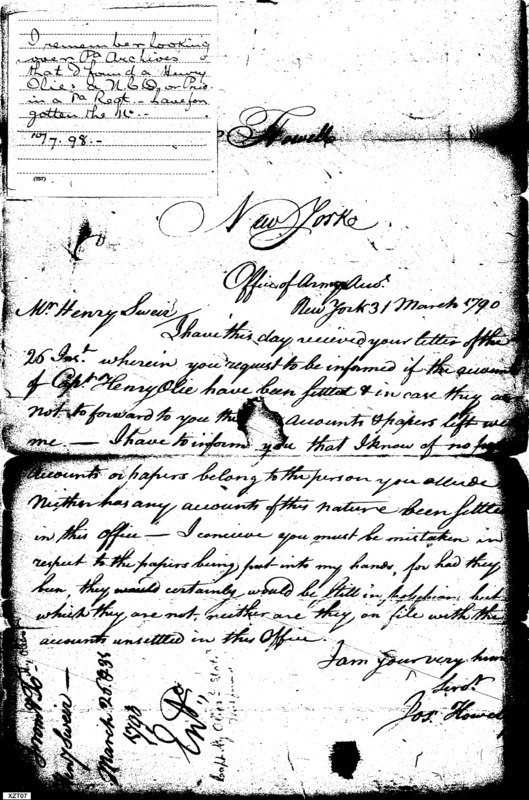 I remember looking
over Pa Archives
that I found a Henry
Olies a N.C.O. or Priv
in a Pa Regt. - have for
gotten the
10/7.98.-
Howell
New York
Office of Army Acct.
New York 31 March 1790
Mr Henry Sweir
I have this day recieved your letter of the
26 Inst. wherein you request to be informed if the accounts
of Captn Henry Olie have been settled & in case they are
not to forward to you the accounts & papers left with
me. - I have to inform you that I know of no
accounts or papers belong to the person you allude
Neither has any accounts of this nature been settled
in this office - I conceive you must be mistaken in
respect to the papers being put into my hands, for had they
been, they would certainly would be still in possession but
which they are not, neither are they on file with the
accounts unsettled in this Office.
I am your very hum
Servt.
Jos. Howell
Henry Sweir -
March 26
1790
Entd
XZT07